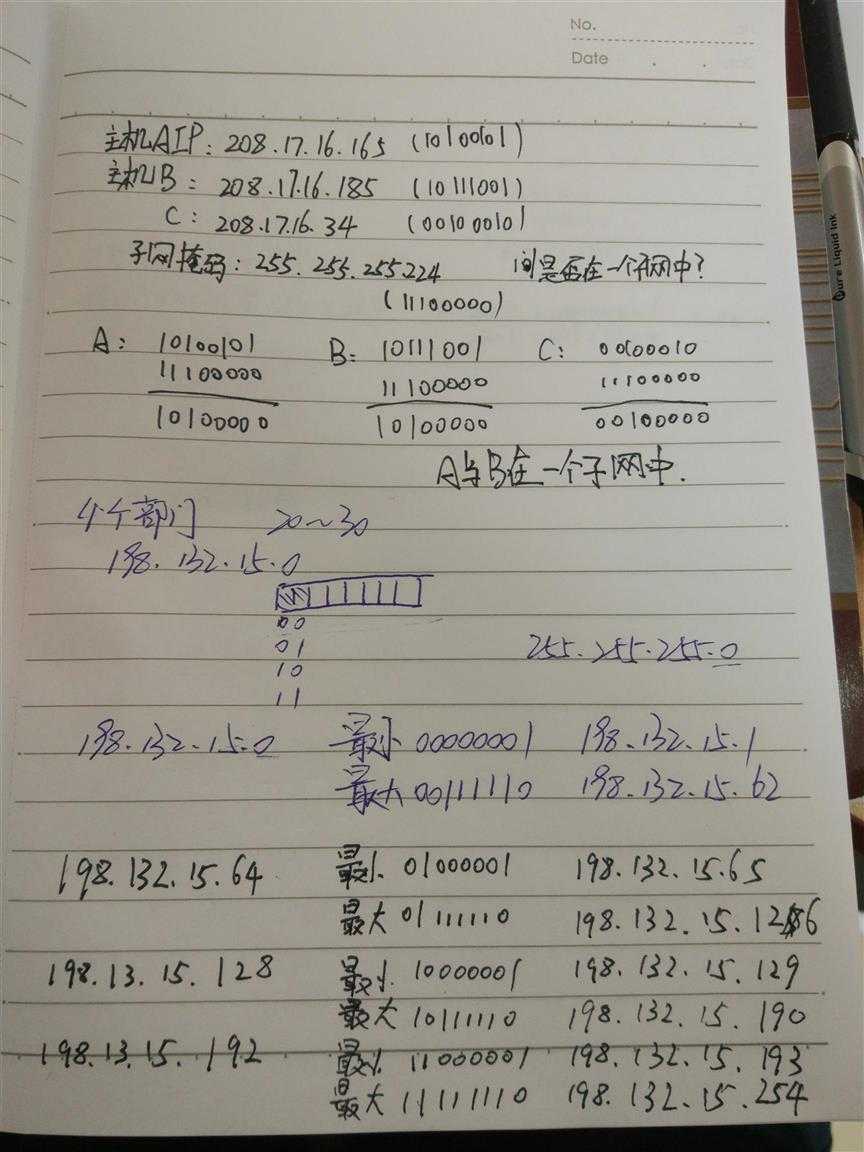 No.
Date
主机A IP: 208.17.16.165 (10100101)
主机B: 208.17.16.185 (10111001)
C: 208.17.16.34 (00100010)
子网掩码: 255.255.255.224 问是否在一个子网中?
(11100000)
A: 10100101 B: 10111001 C: 00100010
11100000 11100000 11100000
10100000 10100000 00100000
A与B在一个子网中.
4个部门 20~30
198.132.15.0
00
01 255.255.255.0
10
11
198.132.15.0 最小 00000001 198.132.15.1
最大 00111110 198.132.15.62
198.132.15.64 最小 01000001 198.132.15.65
最大 01111110 198.132.15.126
198.13.15.128 最小 10000001 198.132.15.129
最大 10111110 198.132.15.190
198.13.15.192 最小 11000001 198.132.15.193
最大 11111110 198.132.15.254
Pure Liquid Ink